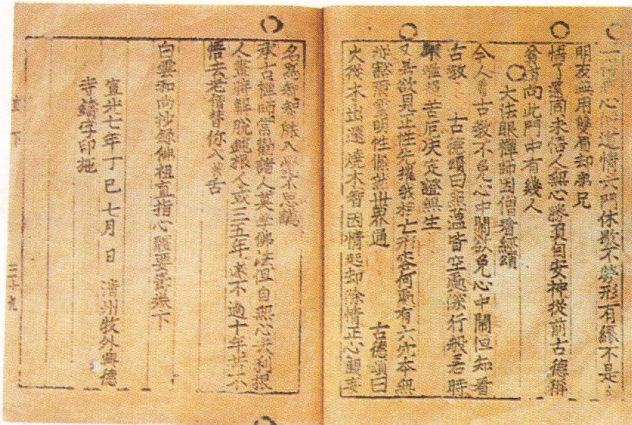 一得無心便道情六門休歇不勞形有緣不是
明友無用雙眉却弟兄
悟了還同未悟人無心勝負自安神從前古德稱
貧道向此門中有幾人
大法眼禪師因僧看經頌
今人看古教不免心中鬧欲免心中鬧但知看
古教 古德頌曰 蘊皆空處深行般若時
超苦厄決定證無生
又 欲見正性先 我相亡形容何處有六 本無
豁 靈明性 世界通 古德頌曰
火從木出還燒木智因情起却除情正心觀
名為智智 入 不思議
承古禪師嘗勸諸人莫學佛法但自無心去利根
人晝時解脫鈍根人或三五年遠不過十年若不
悟去老僧替你入拔舌
白雲和尚抄錄佛祖直指心體要節卷下
宣光七年丁巳七月 日 清州牧外興德
寺鑄字印施
直下 三十九